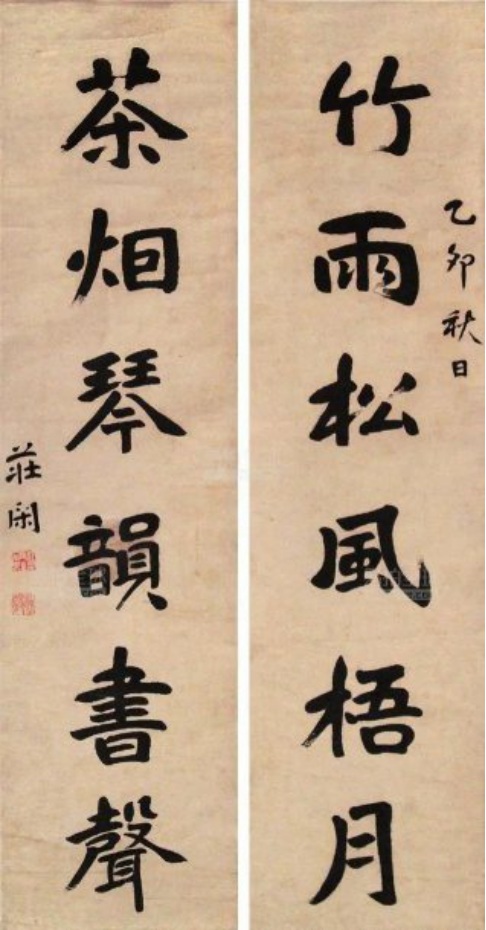 乙卯秋日
竹雨松風梧月
茶烟琴韻書聲
莊閑